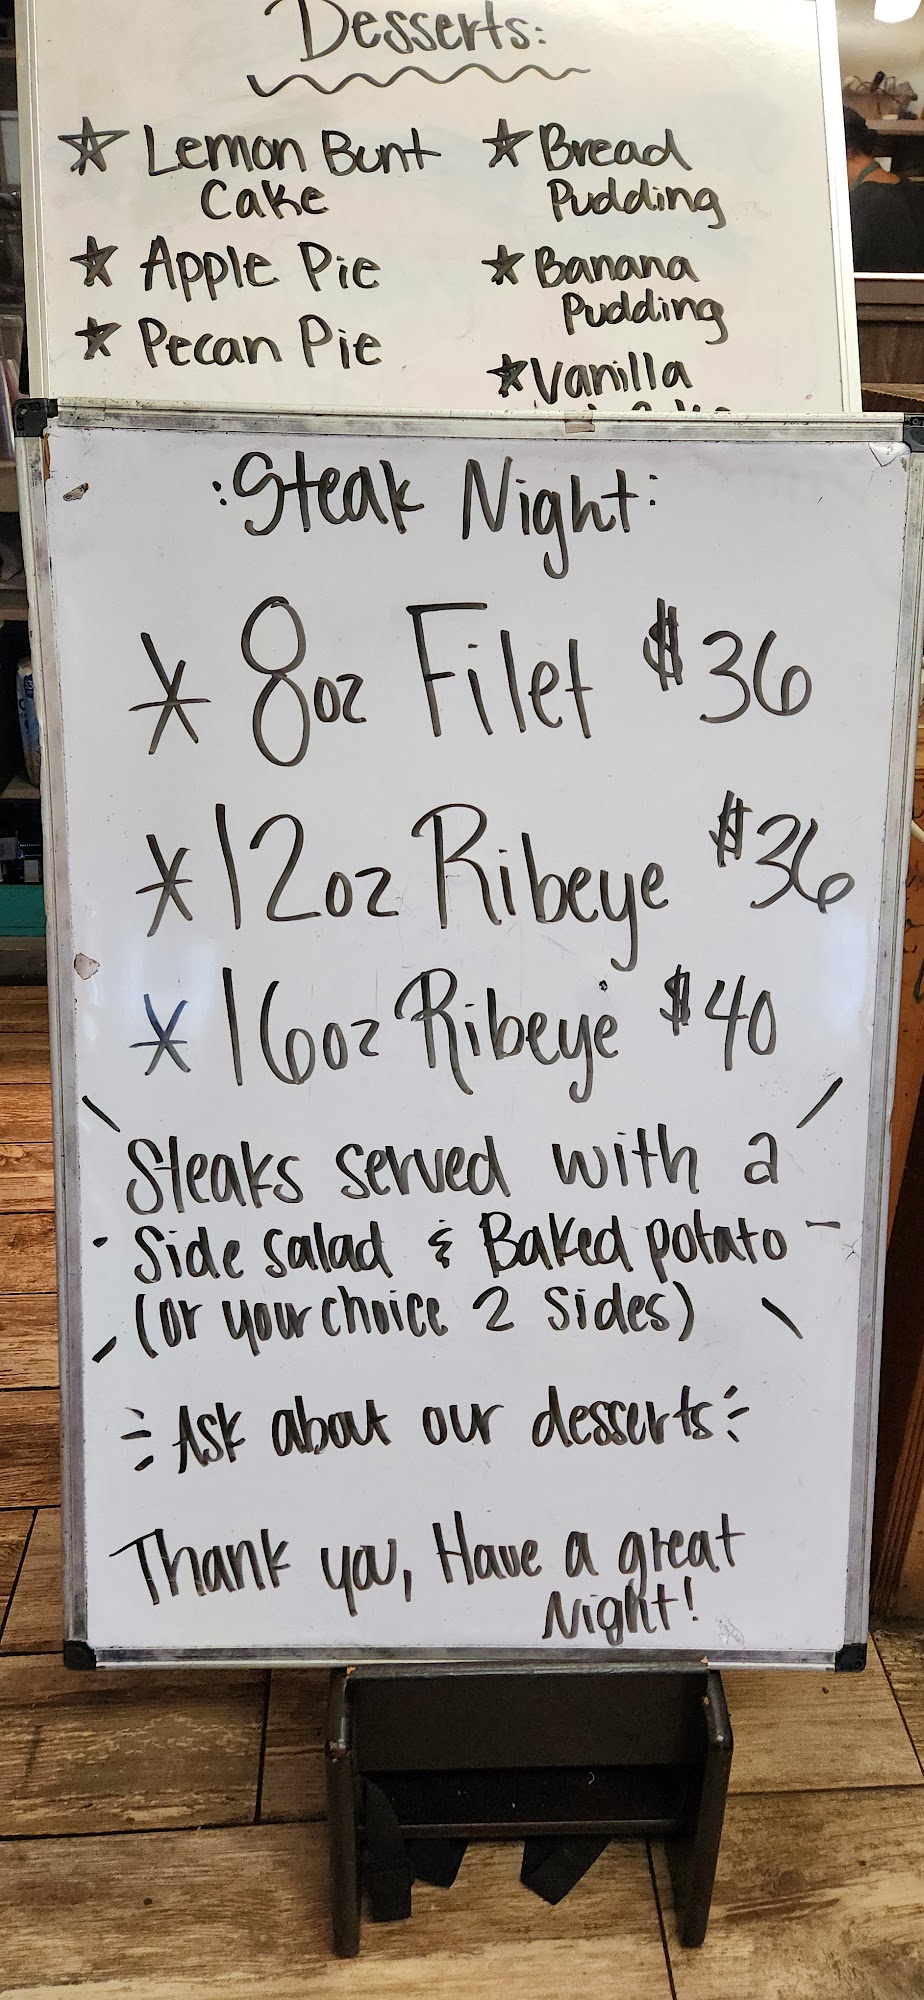 Desserts:
☆ Lemon Bunt
Cake
☆ Apple Pie
☆ Pecan Pie
☆ Bread
Pudding
☆ Banana
Pudding
☆ Vanilla
:Steak Night:
* 8oz Filet $36
* 12oz Ribeye $36
* 16oz Ribeye $40
Steaks served with a
Side salad & Baked potato
(or your choice 2 sides)
Ask about our desserts
Thank you, Have a great
Night!